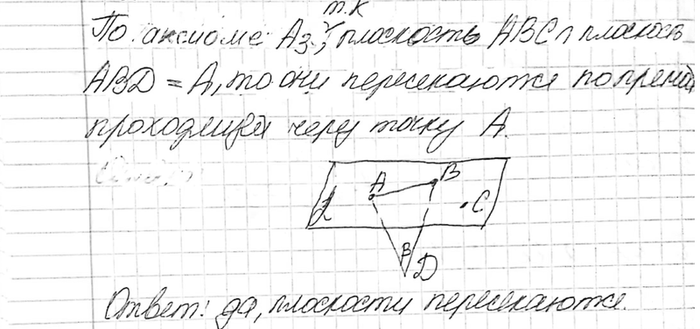 т.к
По аксиоме А3, плоскость ABC ∩ плоскость
ABD = A, то они пересекаются по прямой
проходящей через точку А.
A B
α C
β
D
Ответ: да, плоскости пересекаются.